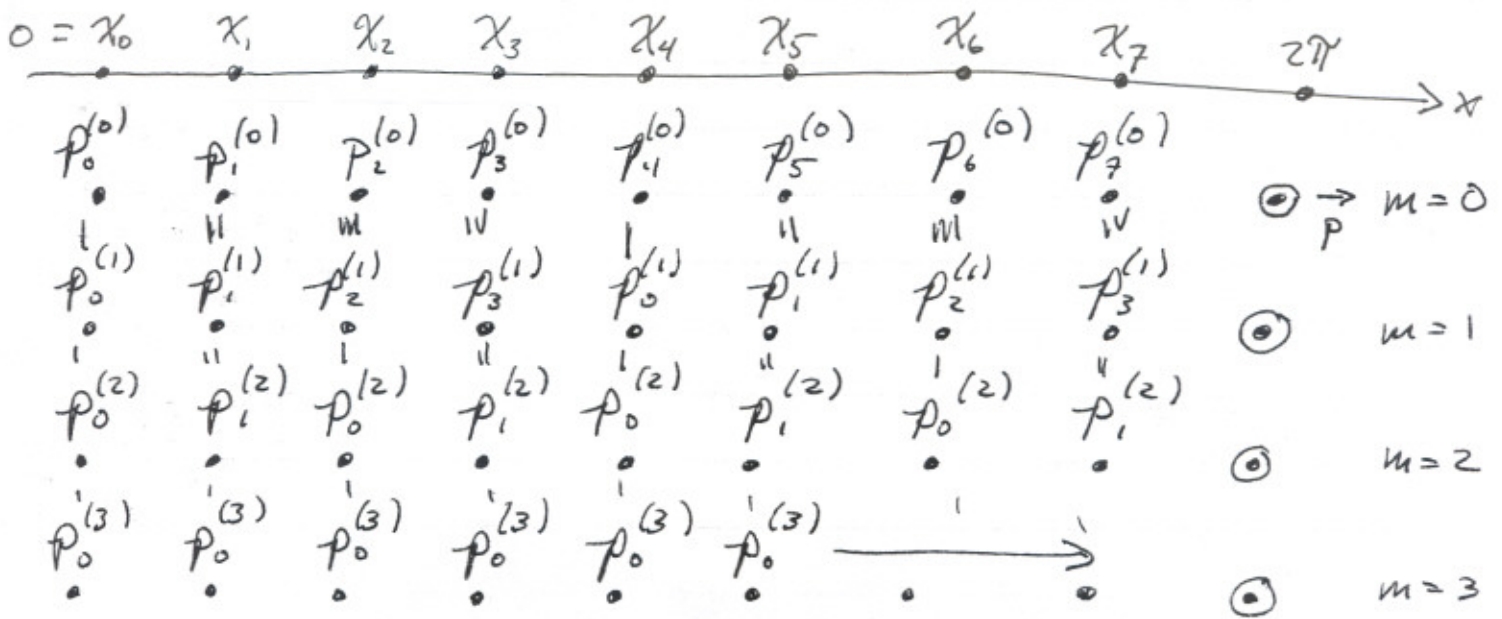 0 = x₀ x₁ x₂ x₃ x₄ x₅ x₆ x₇ 2π
x
p₀⁽⁰⁾ p₁⁽⁰⁾ p₂⁽⁰⁾ p₃⁽⁰⁾ p₄⁽⁰⁾ p₅⁽⁰⁾ p₆⁽⁰⁾ p₇⁽⁰⁾
→ m = 0
p
I II III IV I II III IV
p₀⁽¹⁾ p₁⁽¹⁾ p₂⁽¹⁾ p₃⁽¹⁾ p₀⁽¹⁾ p₁⁽¹⁾ p₂⁽¹⁾ p₃⁽¹⁾
m = 1
I II I II I II I II
p₀⁽²⁾ p₁⁽²⁾ p₀⁽²⁾ p₁⁽²⁾ p₀⁽²⁾ p₁⁽²⁾ p₀⁽²⁾ p₁⁽²⁾
m = 2
I I I I I I I I
p₀⁽³⁾ p₀⁽³⁾ p₀⁽³⁾ p₀⁽³⁾ p₀⁽³⁾ p₀⁽³⁾ →
m = 3